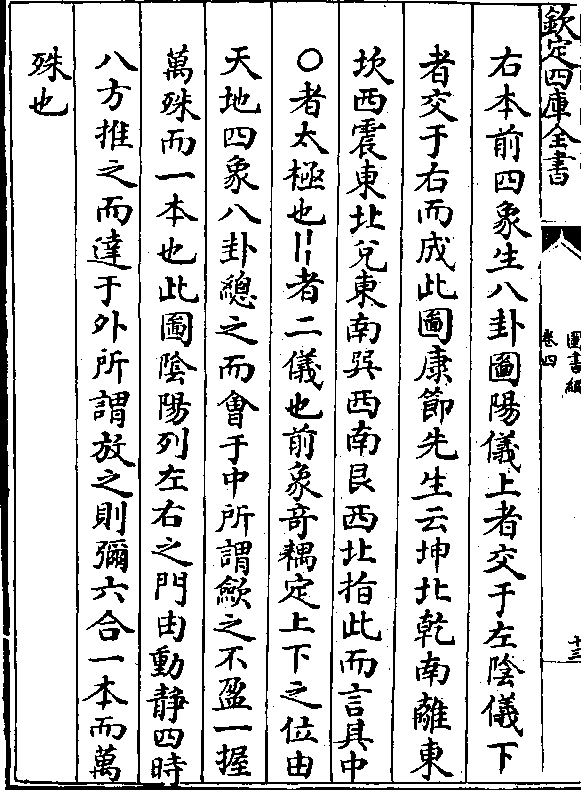 欽定四庫全書
圖書編
卷四
十三
右本前四象生八卦圖陽儀上者交于左陰儀下
者交于右而成此圖康節先生云坤北乾南離東
坎西震東北兌東南巽西南艮西北指此而言其中
〇者太極也〢者二儀也前象奇耦定上下之位由
天地四象八卦總之而會于中所謂歛之不盈一握
萬殊而一本也此圖陰陽列左右之門由動靜四時
八方推之而達于外所謂放之則彌六合一本而萬
殊也